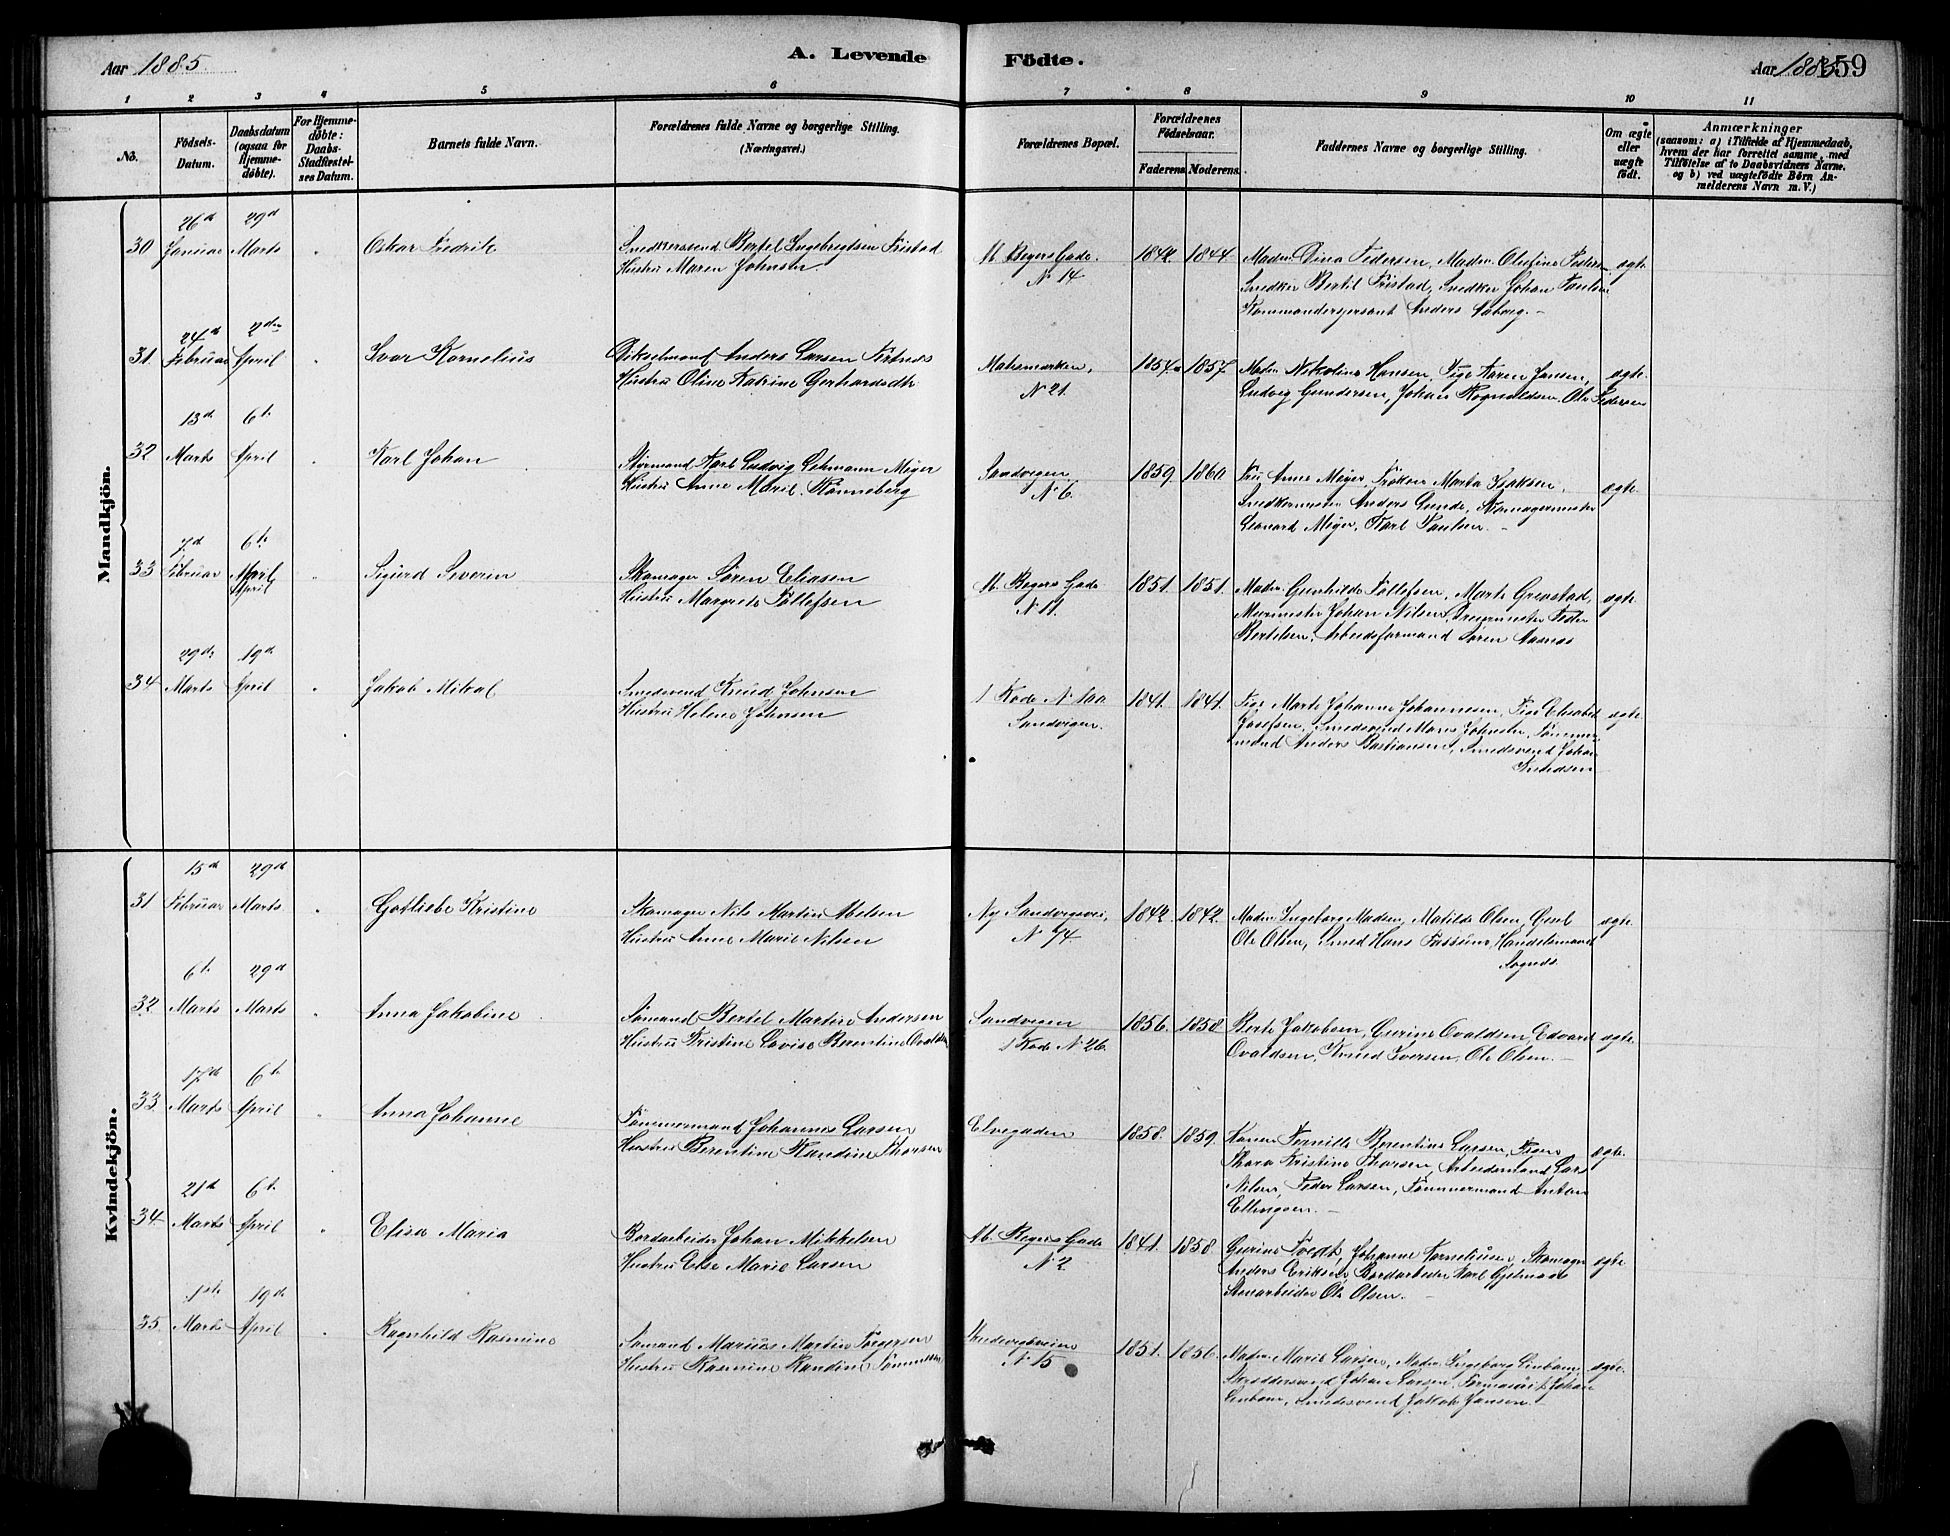 Aar 1885
A. Levende
Födte.
Aar 1885
159
1 2 3 4 5 6 7 8 9 10 11
No.
Födsels-
Datum.
Daabsdatum
(ogsaa for
Hjemme-
døbte).
For Hjemme-
døbte:
Daabs-
Stadfæstel-
ses Datum.
Barnets fulde Navn.
Forældrenes fulde Navne og borgerlige Stilling.
(Næringsvei.)
Forældrenes Bopæl.
Forældrenes
Födselsaar.
Faderens. Moderens.
Faddernes Navne og borgerlige Stilling.
Om ægte
eller
uægte
födt.
Anmærkninger
(saasom: a) i Tilfelde af Hjemmedaab,
hvem der har forrettet samme, med
Tilföielse af to Daabsvidners Navne.
og b) ved uægtefödte Börn An-
melderens Navn m. V.)
Mandkjön.
26d 29d
30 Januar Marts Oskar Fredrik Snedkersvend Bertel Ingebrigtsen Tristad
Hustru Maren Johnsen
M. Beyers Gade.
N 14
1842. 1844
Mad. Dina Pedersen, Mad. Olufine Pedersen
Snedker Bertil Tristad, Snedker Johan Paulsen
Kommandersersant Anders Aaberg.
ægte
24d 2den
31. Februar April Ivar Kornelius
Anders Larsen
Hustru Oline Katrine Gerhardsdtr
N 21.
1854. 1857.
Mad. Nikoline Hansen, Pige Karen Jansen,
Ludvig Gundersen, Johan Rognaldsen, Ole Pedersen
ægte.
13d 6t
32 Marts April Karl Johan Styrmand Karl Ludvig Lehmann Meyer
Hustru Anne Marie Rønneberg
Sandvigen
N 6.
1859. 1860
Fru Anne Meyer, Frøken Marta Isaksen,
Snedkermester Anders Lunde, Skomagermester
Leonard Meyer, Karl Paulsen.
ægte.
7d 6t
33 Februar April Sigurd Severin Skomager Søren Eliasen
Hustru Margrete Tollefsen
M. Beyers Gade
N 11.
1851. 1851.
Mad. Gunhilde Tollefsen, Marte Grevstad,
Murmester Johan Nilsen, Peder
Bertelsen, Arbeidsformand Søren Aasnes
ægte.
29de 19d
34 Marts April Jakob Mikal Smedsvend Knud Johnsen
Hustru Helene Johnsen
1 Rode N 100
Sandvigen.
1841. 1841.
Pige Marte Johanne Johannesen, Pige Elisabet
Josefsen, Smedsvend Mons Johnsen, Tømmer-
mand Anders Bastiansen, Smedsvend Johan
Knudsen
ægte.
Kvindekjön.
15d 29d
31 Februar Marts Gotliebe Kristine Skomager Nils Martin Abelsen
Hustru Anne Marie Nilsen
Ny Sandvigsvei,
N 74
1842. 1842.
Mad. Ingeborg Madsen, Matilde Olsen,
Ole Olsen, Smed Hans Fossum, Handelsmand
ægte.
6t 29d
32 Marts Marts Anna Jakobine Sømand Bertel Martin Andersen
Hustru Kristine Lovise Berentine Ovaldsen
Sandvigen
1 Rode N 26.
1856. 1858.
Berte Jakobsen, Gurine Ovaldsen, Edvard
Ovaldsen, Knud Iversen, Ole Olsen.
ægte.
17d 6t
33 Marts April Anna Johanne Tømmermand Johannes Larsen
Hustru Berentine Randine Thorsen
Elvegaden
1858. 1859.
Konen Pernille Berentine Larsen, Kone
Thora Kristine Thorsen, Arbeidsmand Lars
Nilsen, Peder Larsen, Tømmermand Anton
Ellingsen.
ægte.
21d 6t
34 Marts April Elisa Maria Bordarbeider Johan Mikkelsen
Hustru Else Marie Larsen
M. Beyers Gade
N 2.
1841. 1858.
Gurine Tvedt, Johanne Korneliusen, Skomager
Anders Eriksen, Bordarbeider Karl Gjelmade
Stenarbeider Ole Olsen.
ægte.
1ste 19de
35. Marts April Ragnhild Rasmine Sømand Marius Martin Torgersen
Hustru Rasmine Randine
Sandvigsveien
N 15
1851. 1856.
Mad. Marie Larsen, Mad. Ingeborg Linbom,
Skreddersvend Johan Larsen, Johan
Linbom, Smedesvend Jakob Jansen.
ægte.